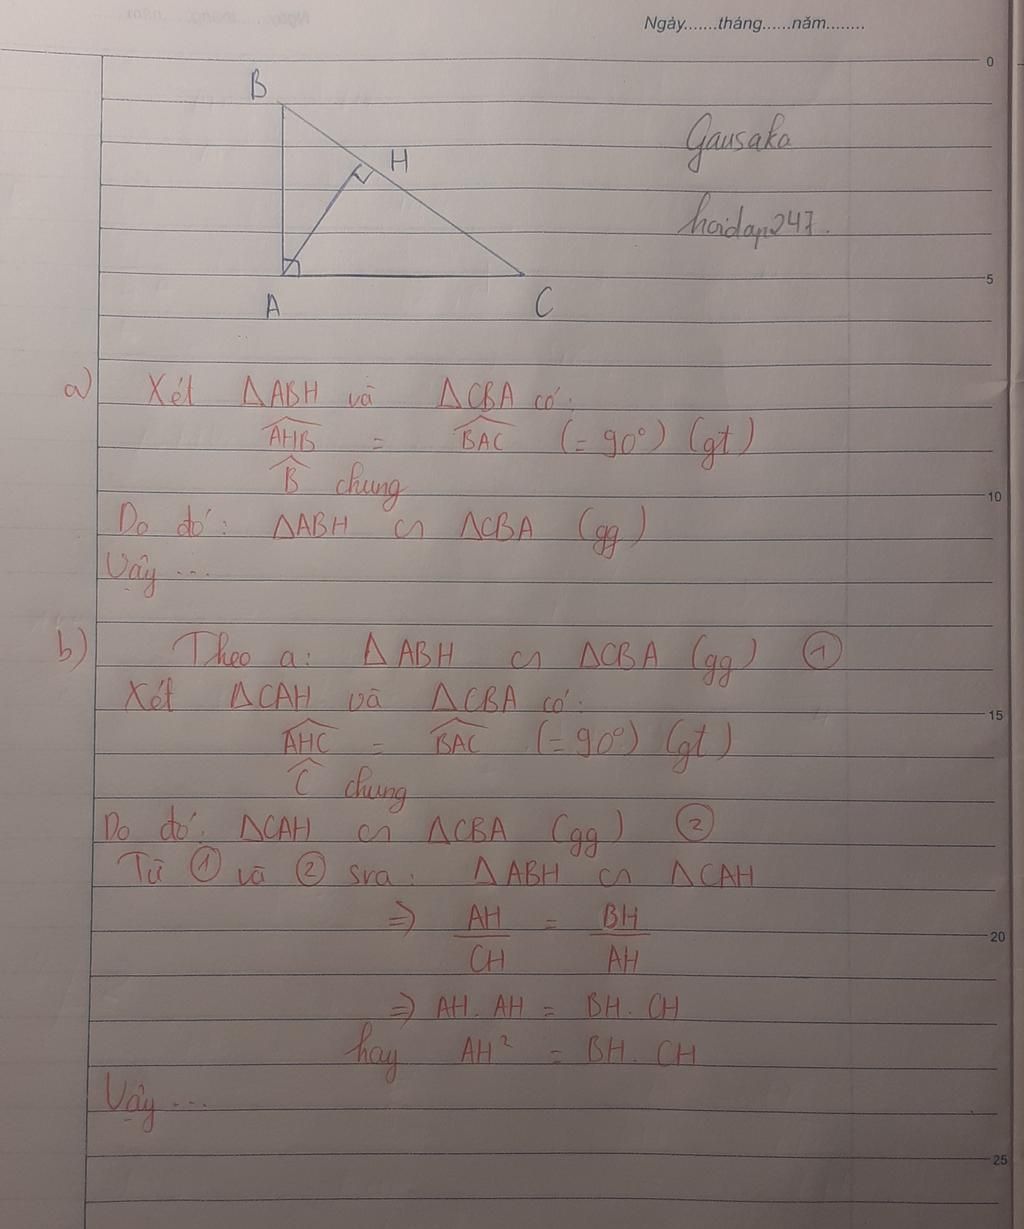 Ngày.......tháng......năm........
0
B
H
Gausaka
hoidap247.
5
A
C
a) Xét ΔABH và ΔCBA có:
\widehat{AHB} = \widehat{BAC} (= 90°) (gt)
\widehat{B} chung
10
Do đó: ΔABH ∽ ΔCBA (gg)
Vậy ...
b) Theo a: ΔABH ∽ ΔCBA (gg) ①
Xét ΔCAH và ΔCBA có:
15
\widehat{AHC} = \widehat{BAC} (= 90°) (gt)
\widehat{C} chung
Do đó: ΔCAH ∽ ΔCBA (gg) ②
Từ ① và ② sra: ΔABH ∽ ΔCAH
⇒ AH/CH = BH/AH
20
⇒ AH. AH = BH. CH
hay AH² = BH. CH
Vậy ...
25